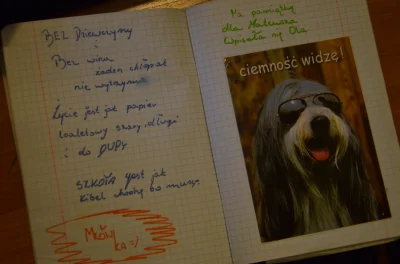 BEZ Dziewczyny
i
Bez wina
żaden chłopak
nie wytrzyma
Życie jest jak papier
toaletowy szary, długi
i do DUPY
SZKOŁA jest jak
kibel chodzę bo muszę.
Mrów
ka =)
Na pamiątkę
dla Mateuszka
Wpisała się Ola
ciemność widzę!